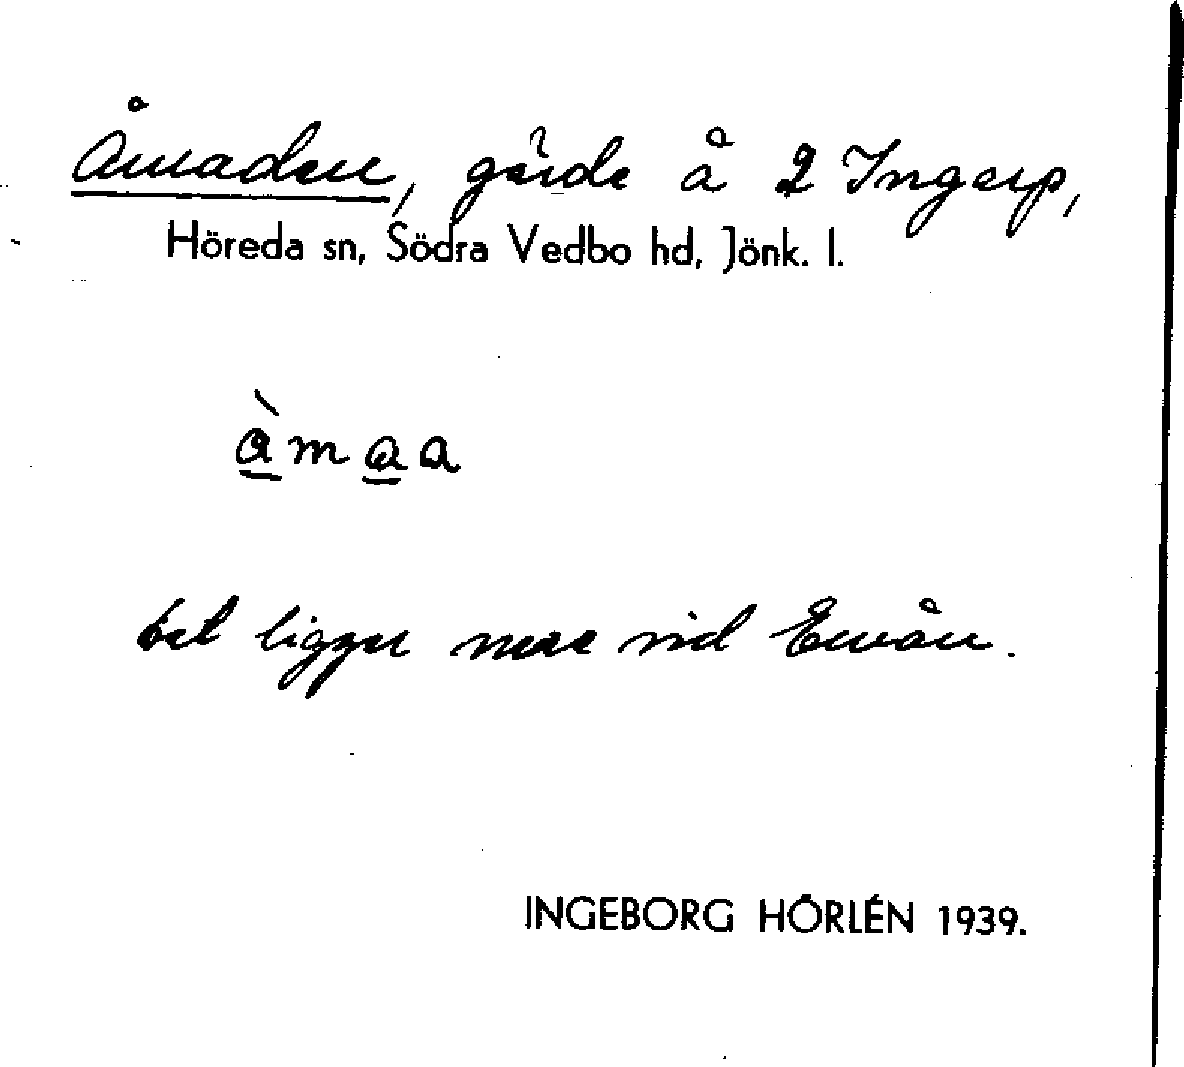 Åmaden, gärde å 2 Ingarp,
Höreda sn, Södra Vedbo hd, Jönk. l.
àmaa
det ligger nere vid Emån.
INGEBORG HÖRLÉN 1939.